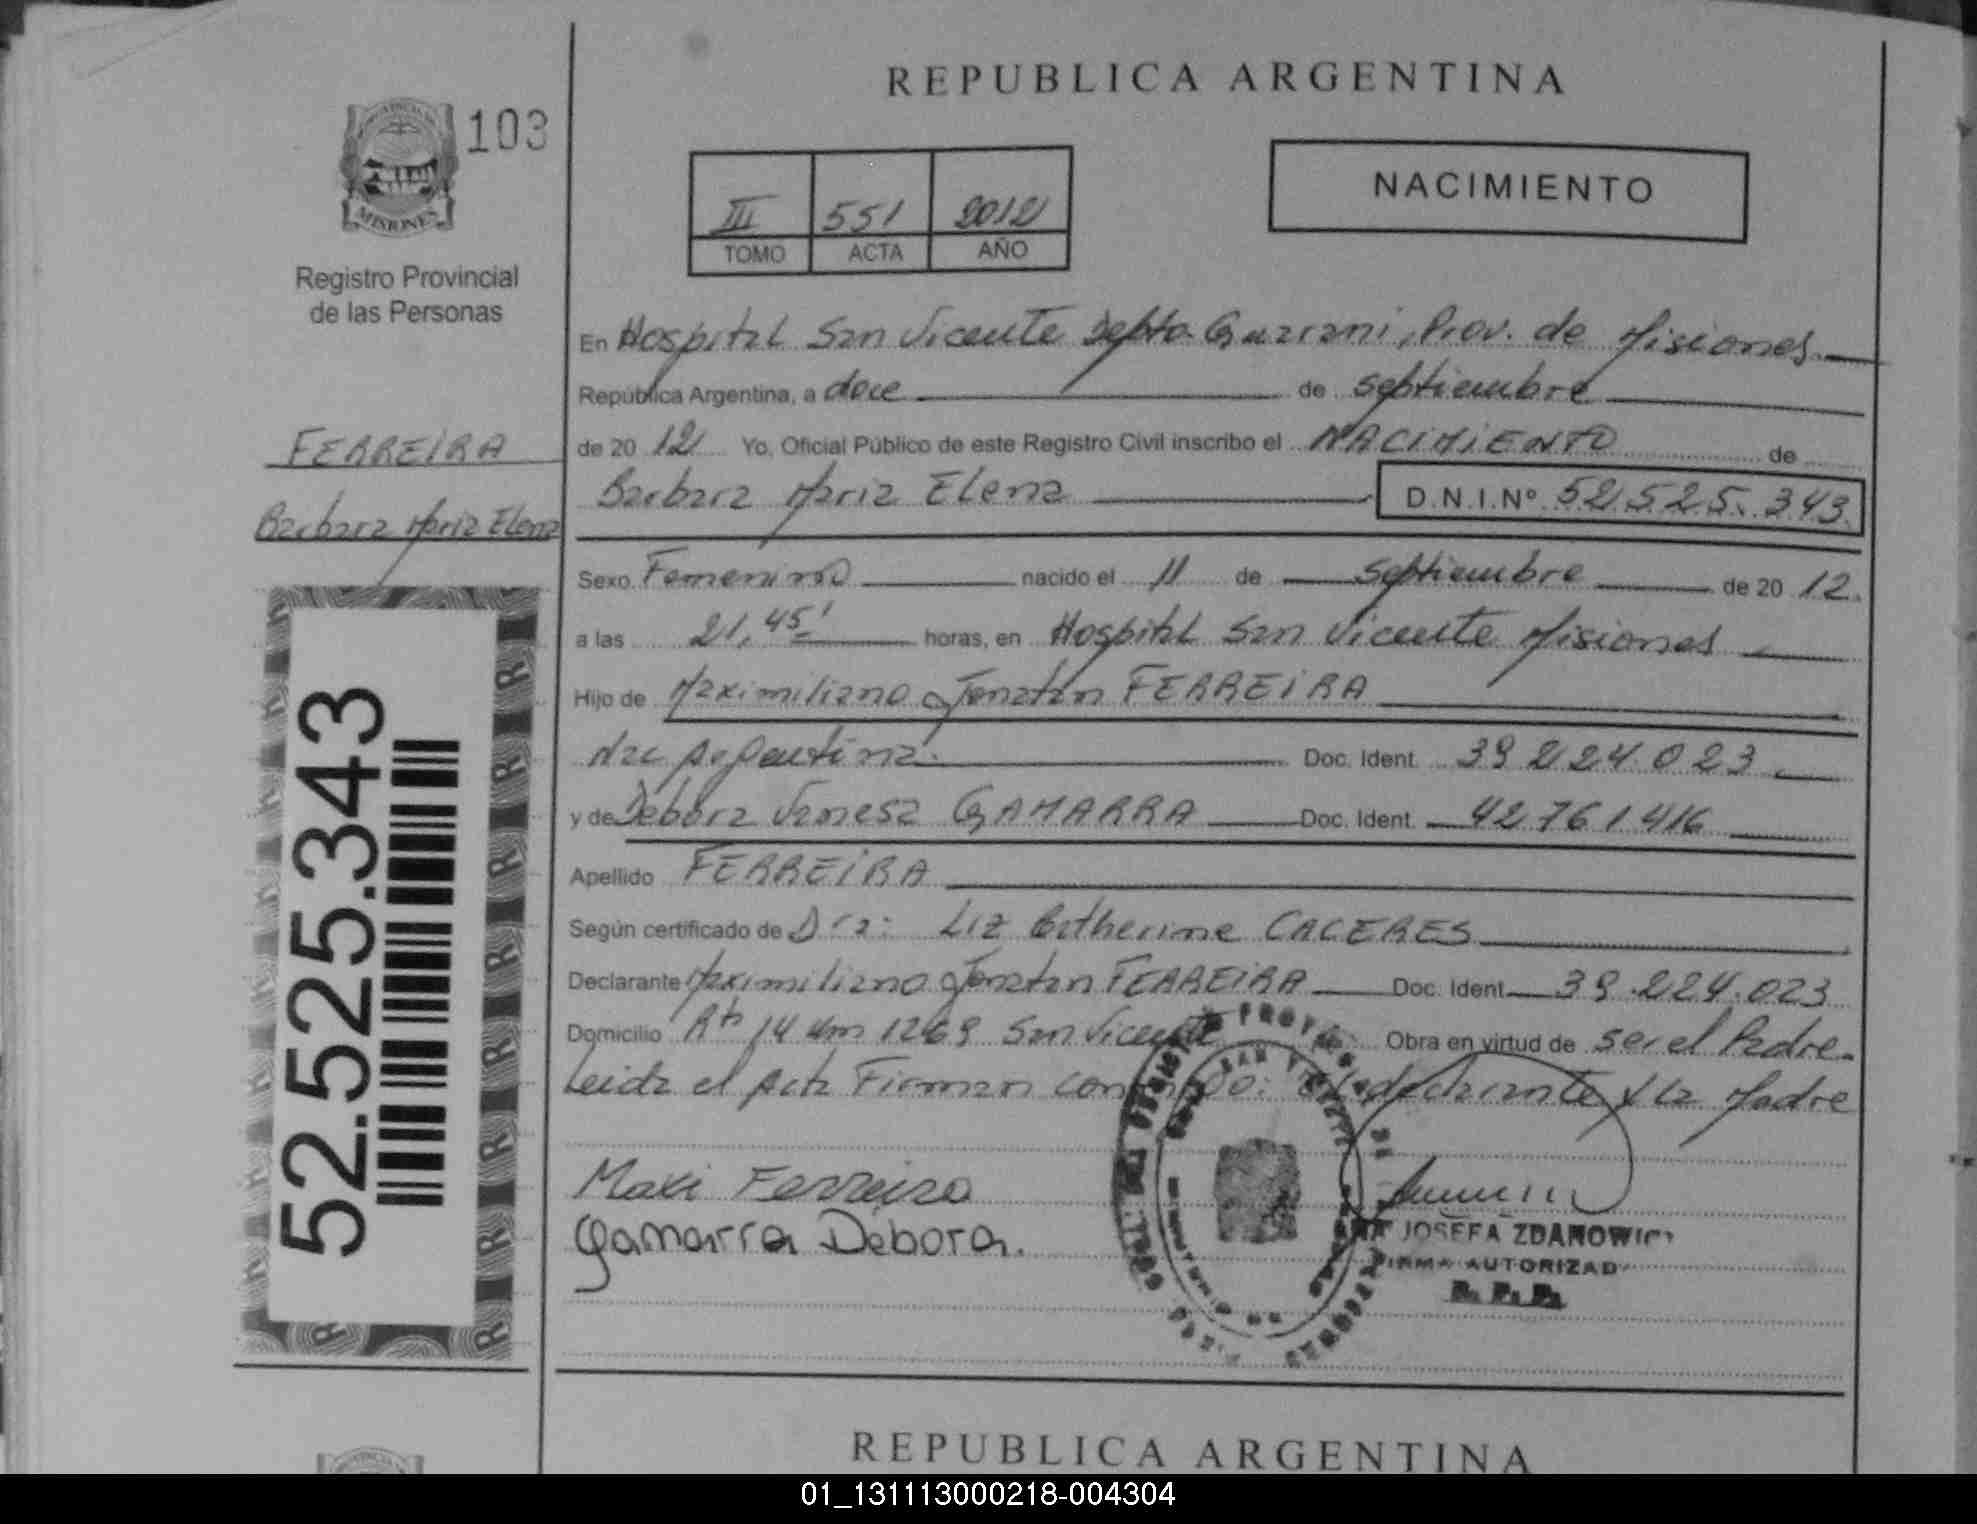 REPUBLICA ARGENTINA
103
MISIONES
Registro Provincial
de las Personas
III 551 2012
TOMO ACTA AÑO
NACIMIENTO
FERREIRA
Barbara Maria Elena
52.525.343
En Hospital San Vicente Depto. Guarani, Prov. de Misiones.
República Argentina, a doce de septiembre
de 20 12 Yo, Oficial Público de este Registro Civil inscribo el NACIMIENTO de
Barbara Maria Elena D.N.I.Nº 52.525.343.
Sexo Femenino nacido el 11 de septiembre de 20 12.
a las 21,45' horas, en Hospital San Vicente Misiones
Hijo de Maximiliano Jonatan FERREIRA
Nac Argentina. Doc. Ident. 39 224.023
y de Debora Vanesa GAMARRA Doc. Ident. 42.761.416
Apellido FERREIRA
Según certificado de Dra: Liz Catherine CACERES
Declarante Maximiliano Jonatan FERREIRA Doc. Ident. 39.224.023
Domicilio Rta 14 Km 1269 San Vicente Obra en virtud de ser el Padre.
Leida el Acta Firman conmigo: El declarante y la Madre
Maxi Ferreira
Gamarra Débora.
JOSEFA ZDANOWICZ
FIRMA AUTORIZADA
R. P. P.
REPUBLICA ARGENTINA
01_131113000218-004304